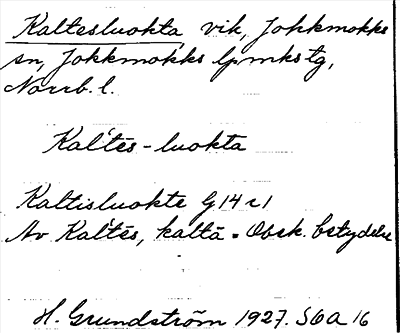 Kaltesluokta vik, Jokkmokks
sn, Jokkmokks lpmkstg,
Norrb. l.
Kal'tēs-luokta
Kaltisluokte G 14 c 1
Av Kal'tēs, kaltā = Obek. betydelse
H. Grundström 1927. S6a 16